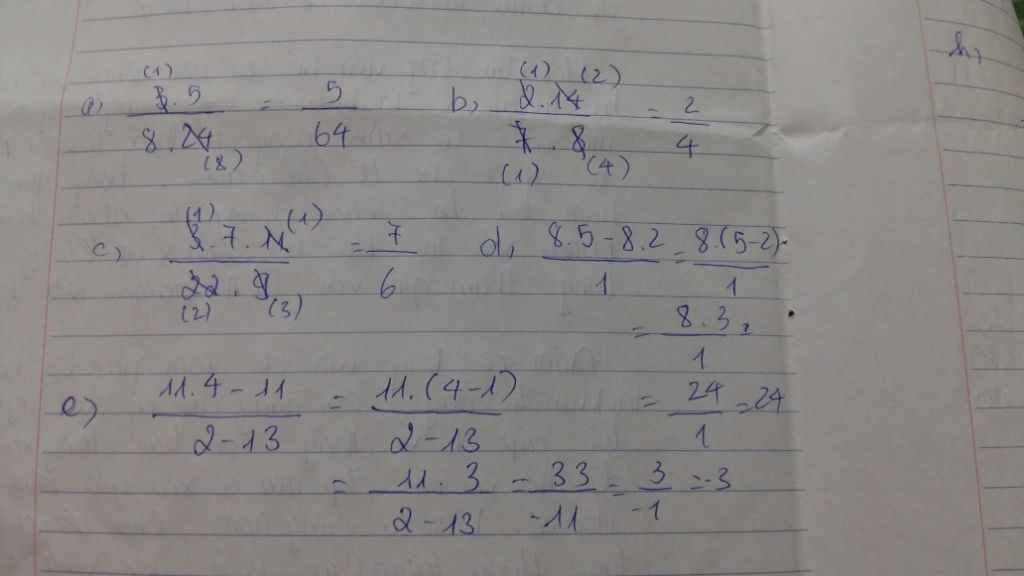 h,
a, (1) 3.5 / 8.24 (8) = 5 / 64
b, (1) (2) 2.14 / 7.8 (1) (4) = 2 / 4
c, (1) 3.7.11 (1) / 22.9 (2) (3) = 7 / 6
d, 8.5-8.2 / 1 = 8.(5-2) / 1
= 8.3 / 1
= 24 / 1 = 24
e) 11.4-11 / 2-13 = 11.(4-1) / 2-13
= 11.3 / 2-13 = 33 / -11 = 3 / -1 = -3